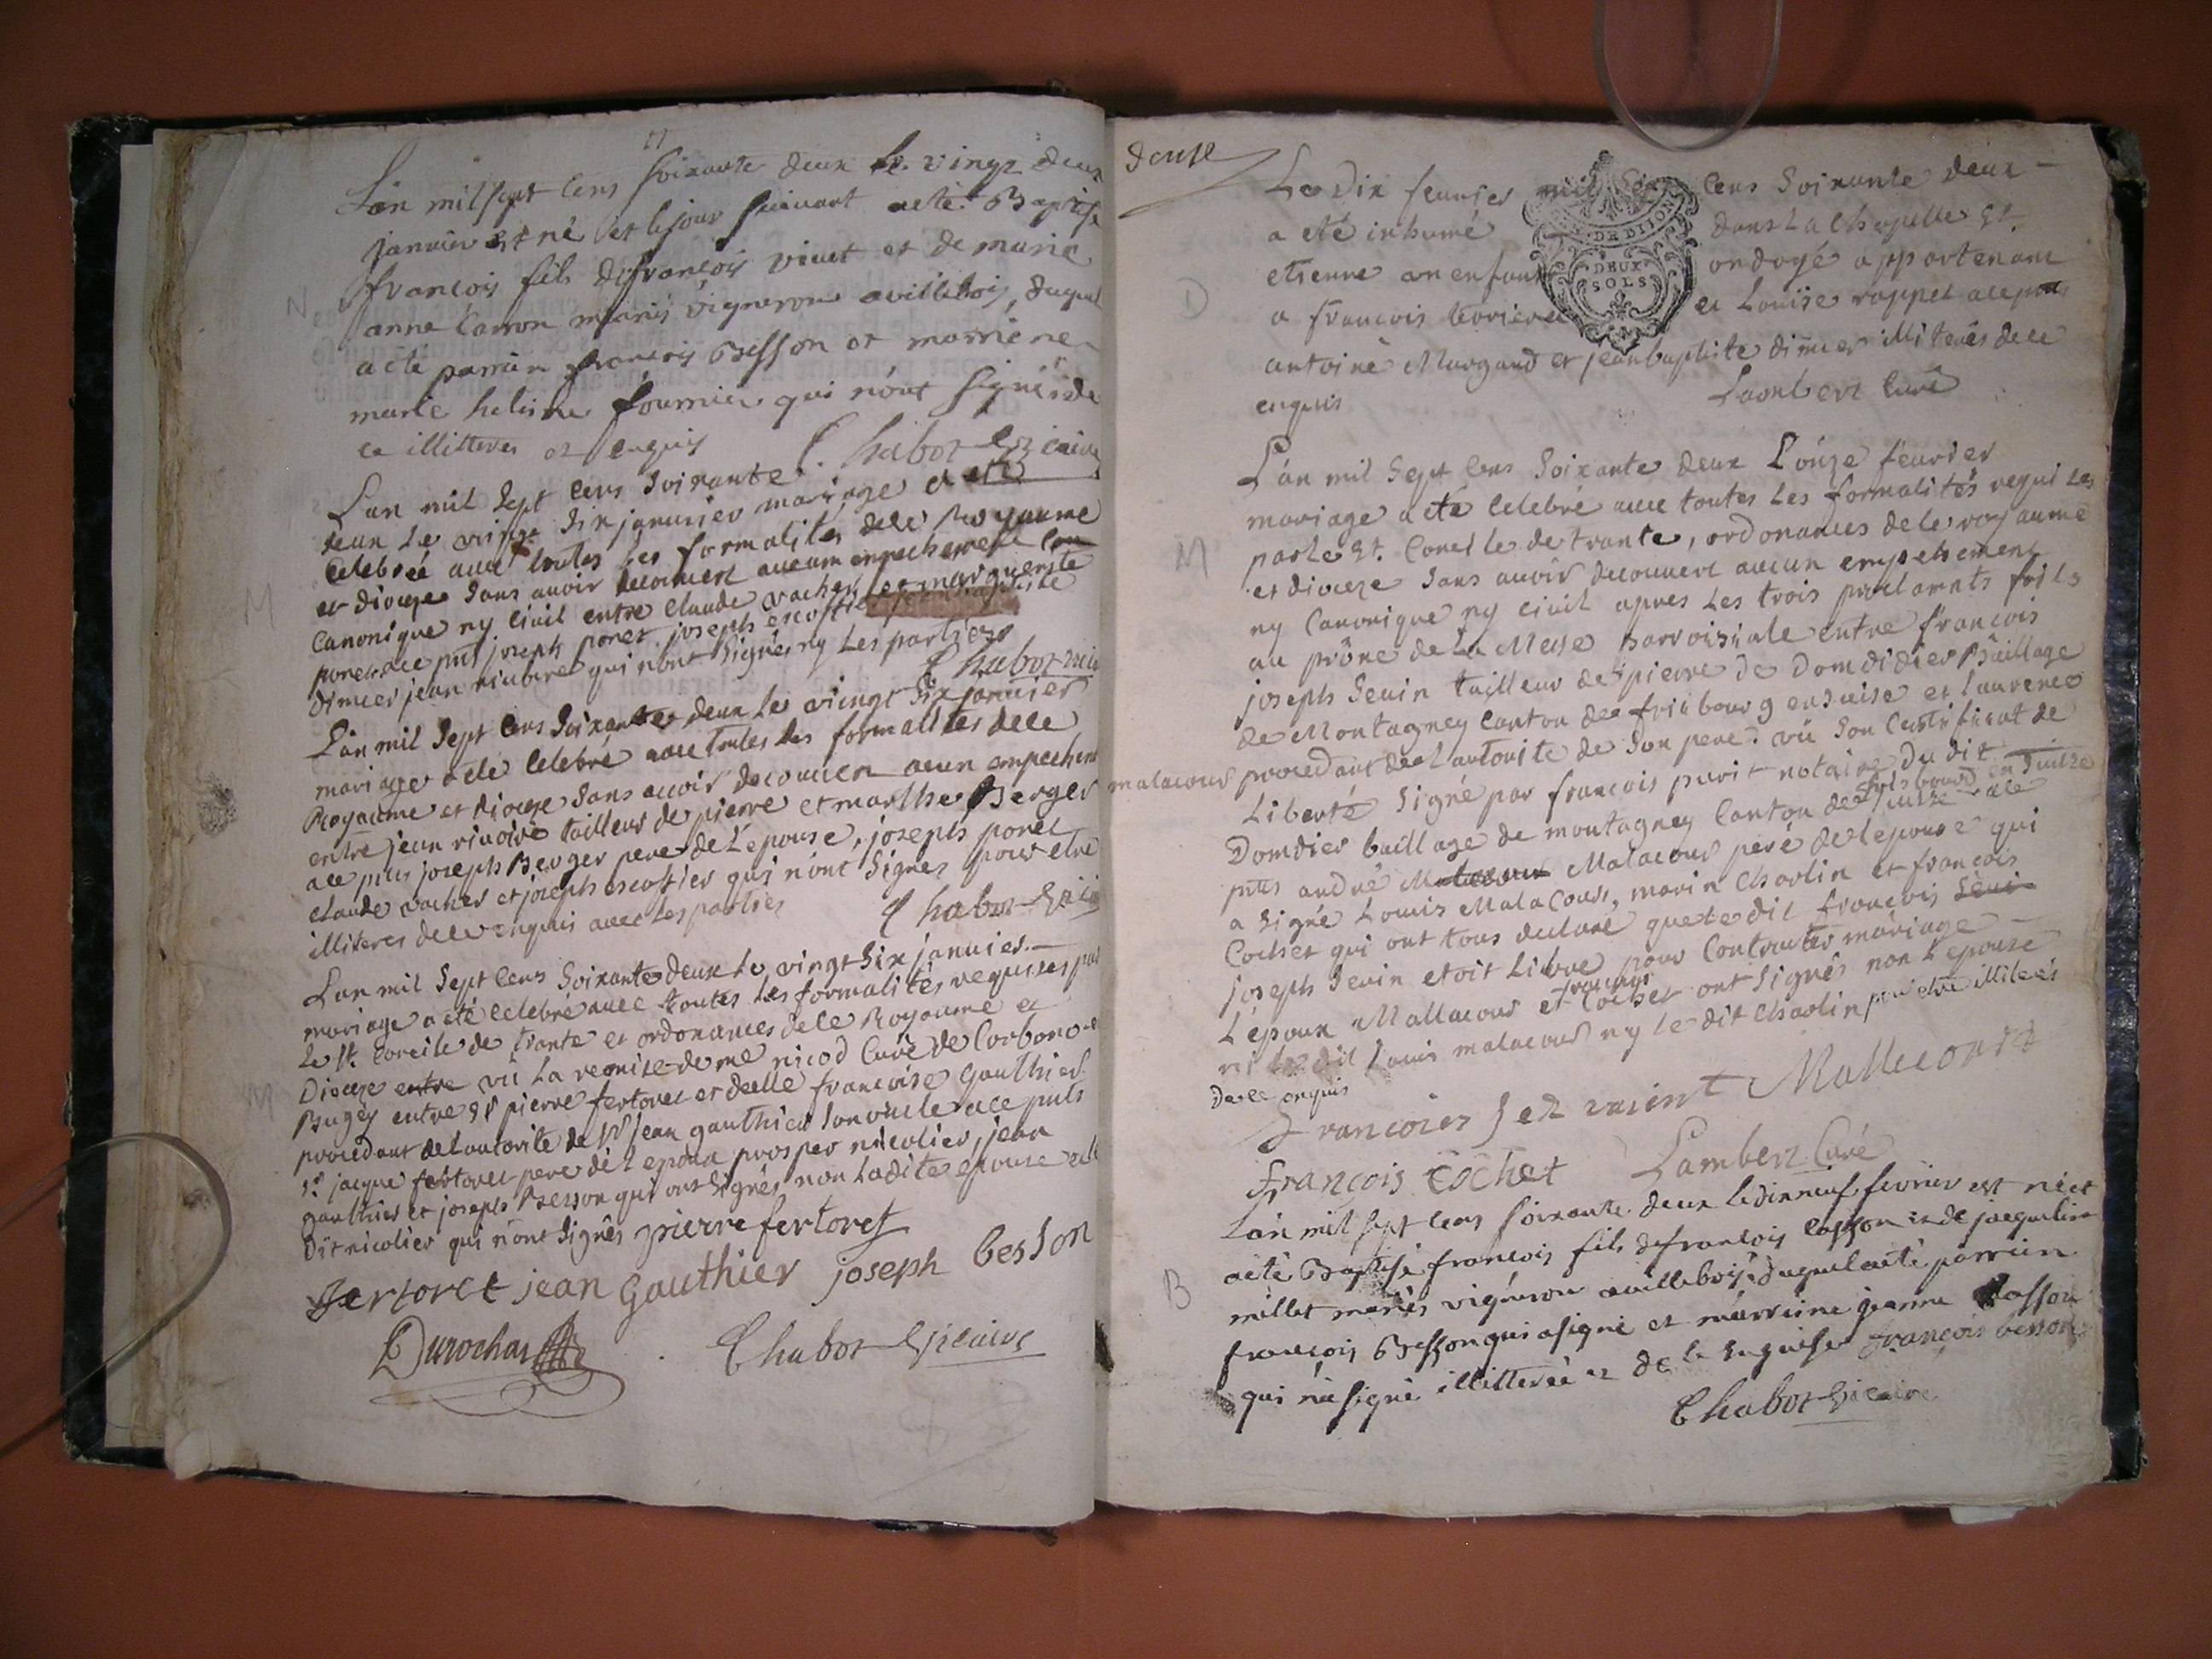 L'an mil sept cens soixante deux le vingt deux
janvier est né et le jour suivant a eté Baptisé
françois fils de françois vivet et de marie
anne Carron mariés vigneron a villebois, duquel
a eté parrain françois Besson et marraine
marie heleine fournier qui n'ont signés de
ce illitteres et enquis Chabot vicaire
L'an mil sept cens soixante
deux le vingt six janvier mariage a eté
celebréé avec toutes les formalités de ce Royaume
et dioceze sans avoir decouvert aucun empechement
Canonique ny civil entre Claude vacher et marguerite
ponet ace pnts joseph ponet joseph escoffier jean baptiste
dimier jean rivoire qui n'ont signés ny les parties
Chabot vic
L'an mil sept cens soixante deux le vingt six janvier
mariage a eté celebré avec toutes les formalités de ce
Royaume et dioceze sans avoir decouvert aucun empechem
entre jean rivoire tailleur de pierre et marthe Berger
ace pnts joseph Berger pere de l'epouse, joseph ponet
claude vacher et joseph escoffier qui n'ont signés pour etre
illiteres de ce enquis avec les parties Chabot vicai
L'an mil sept cens soixante deux le vingt six janvier
mariage a eté celebré avec toutes les formalités requises par
le St. Concile de trante et ordonances de ce Royaume et
Dioceze entre vù la remise de me nicod Curé de Corbono
Bugey entre Sr pierre fertoret et delle françoise Gauthier
procedant de l'autorite de Sr jean gauthier son oncle ace pnts
Sr. jacque fertoret pere de l'epoux prosper nicolier, jean
gauthier et joseph Besson qui ont signés non ladite epouse ny le
dit nicolier qui n'ont signés pierre fertoret
fertoret jean Gauthier joseph besson
Durochat Chabot vicaire
douse
Le dix fevrier mil sept cens soixante deux
a eté inhumé dans la Chapelle St.
etienne un enfant ondoyé appartenant
a françois et Louïse rappet ace pnts
antoine Margand et jean baptiste dimier illiterés de ce
enquis Lambert Curé
DE DIJON
DEUX
SOLS
L'an mil sept cens soixante deux L'onze fevrier
mariage a eté celebré avec toutes les formalités requi les
par le St. Concile de trante, ordonances de ce royaume
et dioceze sans avoir decouvert aucun empechement
ny Canonique ny civil apres les trois proclamats faits
au prône de la Messe parroissiale entre françois
joseph Sevin tailleur de pierre de Domdidier Bâillage
de Montagney Canton de fribourg en suise et laurence
malacour procedant de l'autorité de son pere. vû son Certificat de
Liberté signé par françois notaire du dit
Domdier baillage de montagney Canton de fribourg en suisse ace
pnts andré Malacour pere de l'epouse qui
a signé Louis Malacour, marin Charlin et françois
Cochet qui ont tous declaré que le dit françois
joseph Sevin etoit Libre pour Contracter mariage
L'epoux Mallacour et françois Cochet ont signés non l'epouse
ni ledit Louis malacour ny le dit Charlin pour etre illiterés
de ce enquis
francoies Mallecourt
françois Cochet Lambert Curé
L'an mil sept cens soixante deux le dix neuf fevrier est né et
a eté Baptisé françois fils de françois Casson et de jacqueline
millet mariés vigneron a villebois duquel a eté parrain
françois Besson qui a signé et marreine jeanne Casson
qui n'a signé illitterée et de ce enquise françois besson
Chabot vicaire
N
M
M
D
M
B